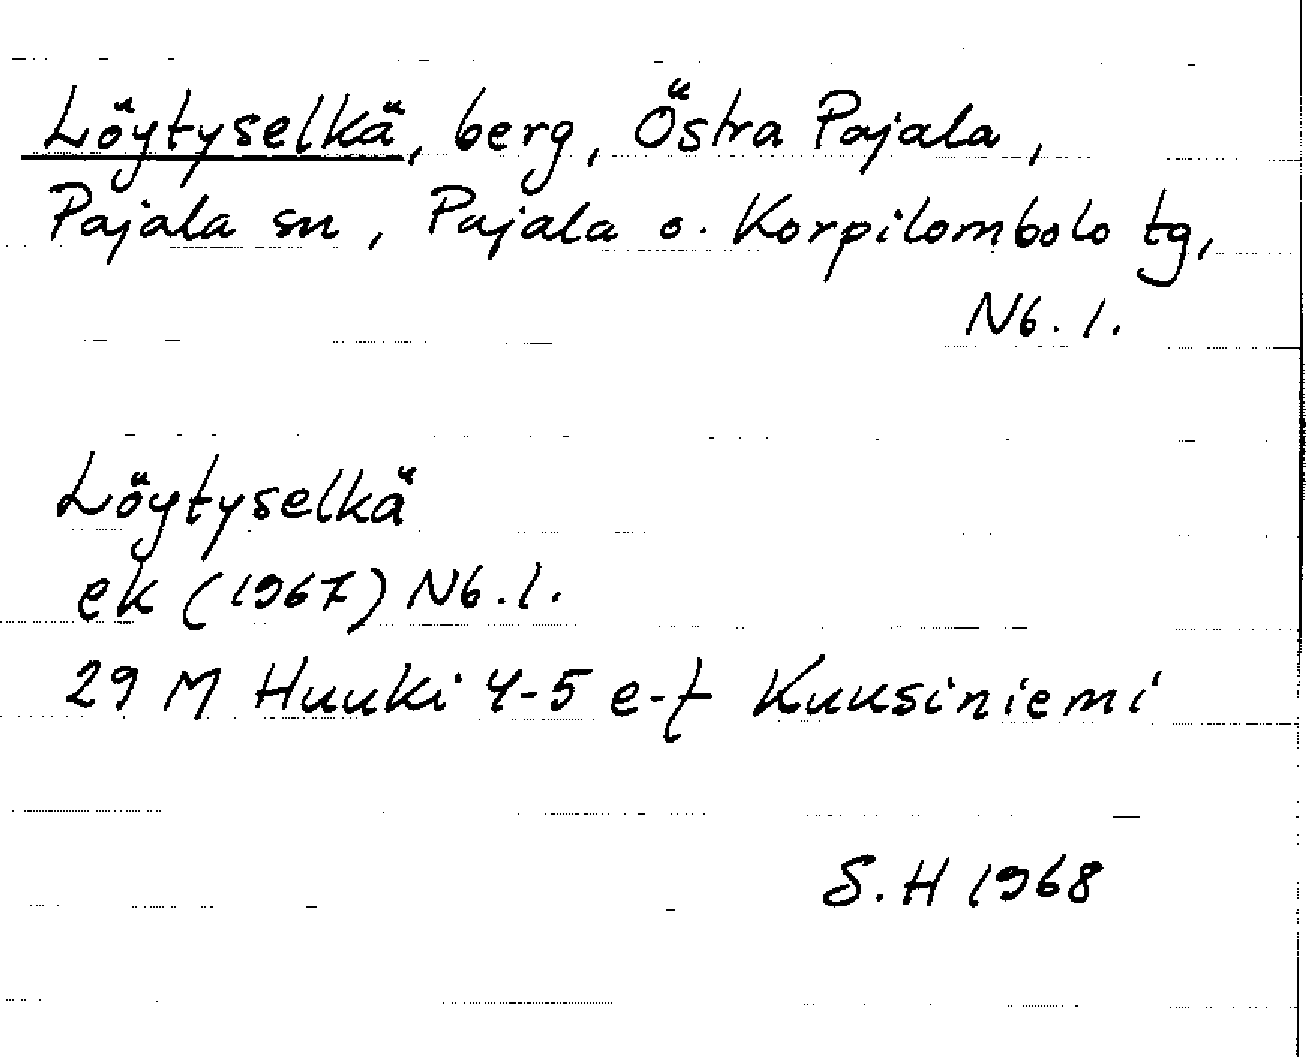 Löytyselkä, berg, Östra Pajala,
Pajala sn, Pajala o. Korpilombolo tg,
Nb. l.
Löytyselkä
ek (1967) Nb. l.
29 M Huuki 4-5 e-f Kuusiniemi
S. H 1968